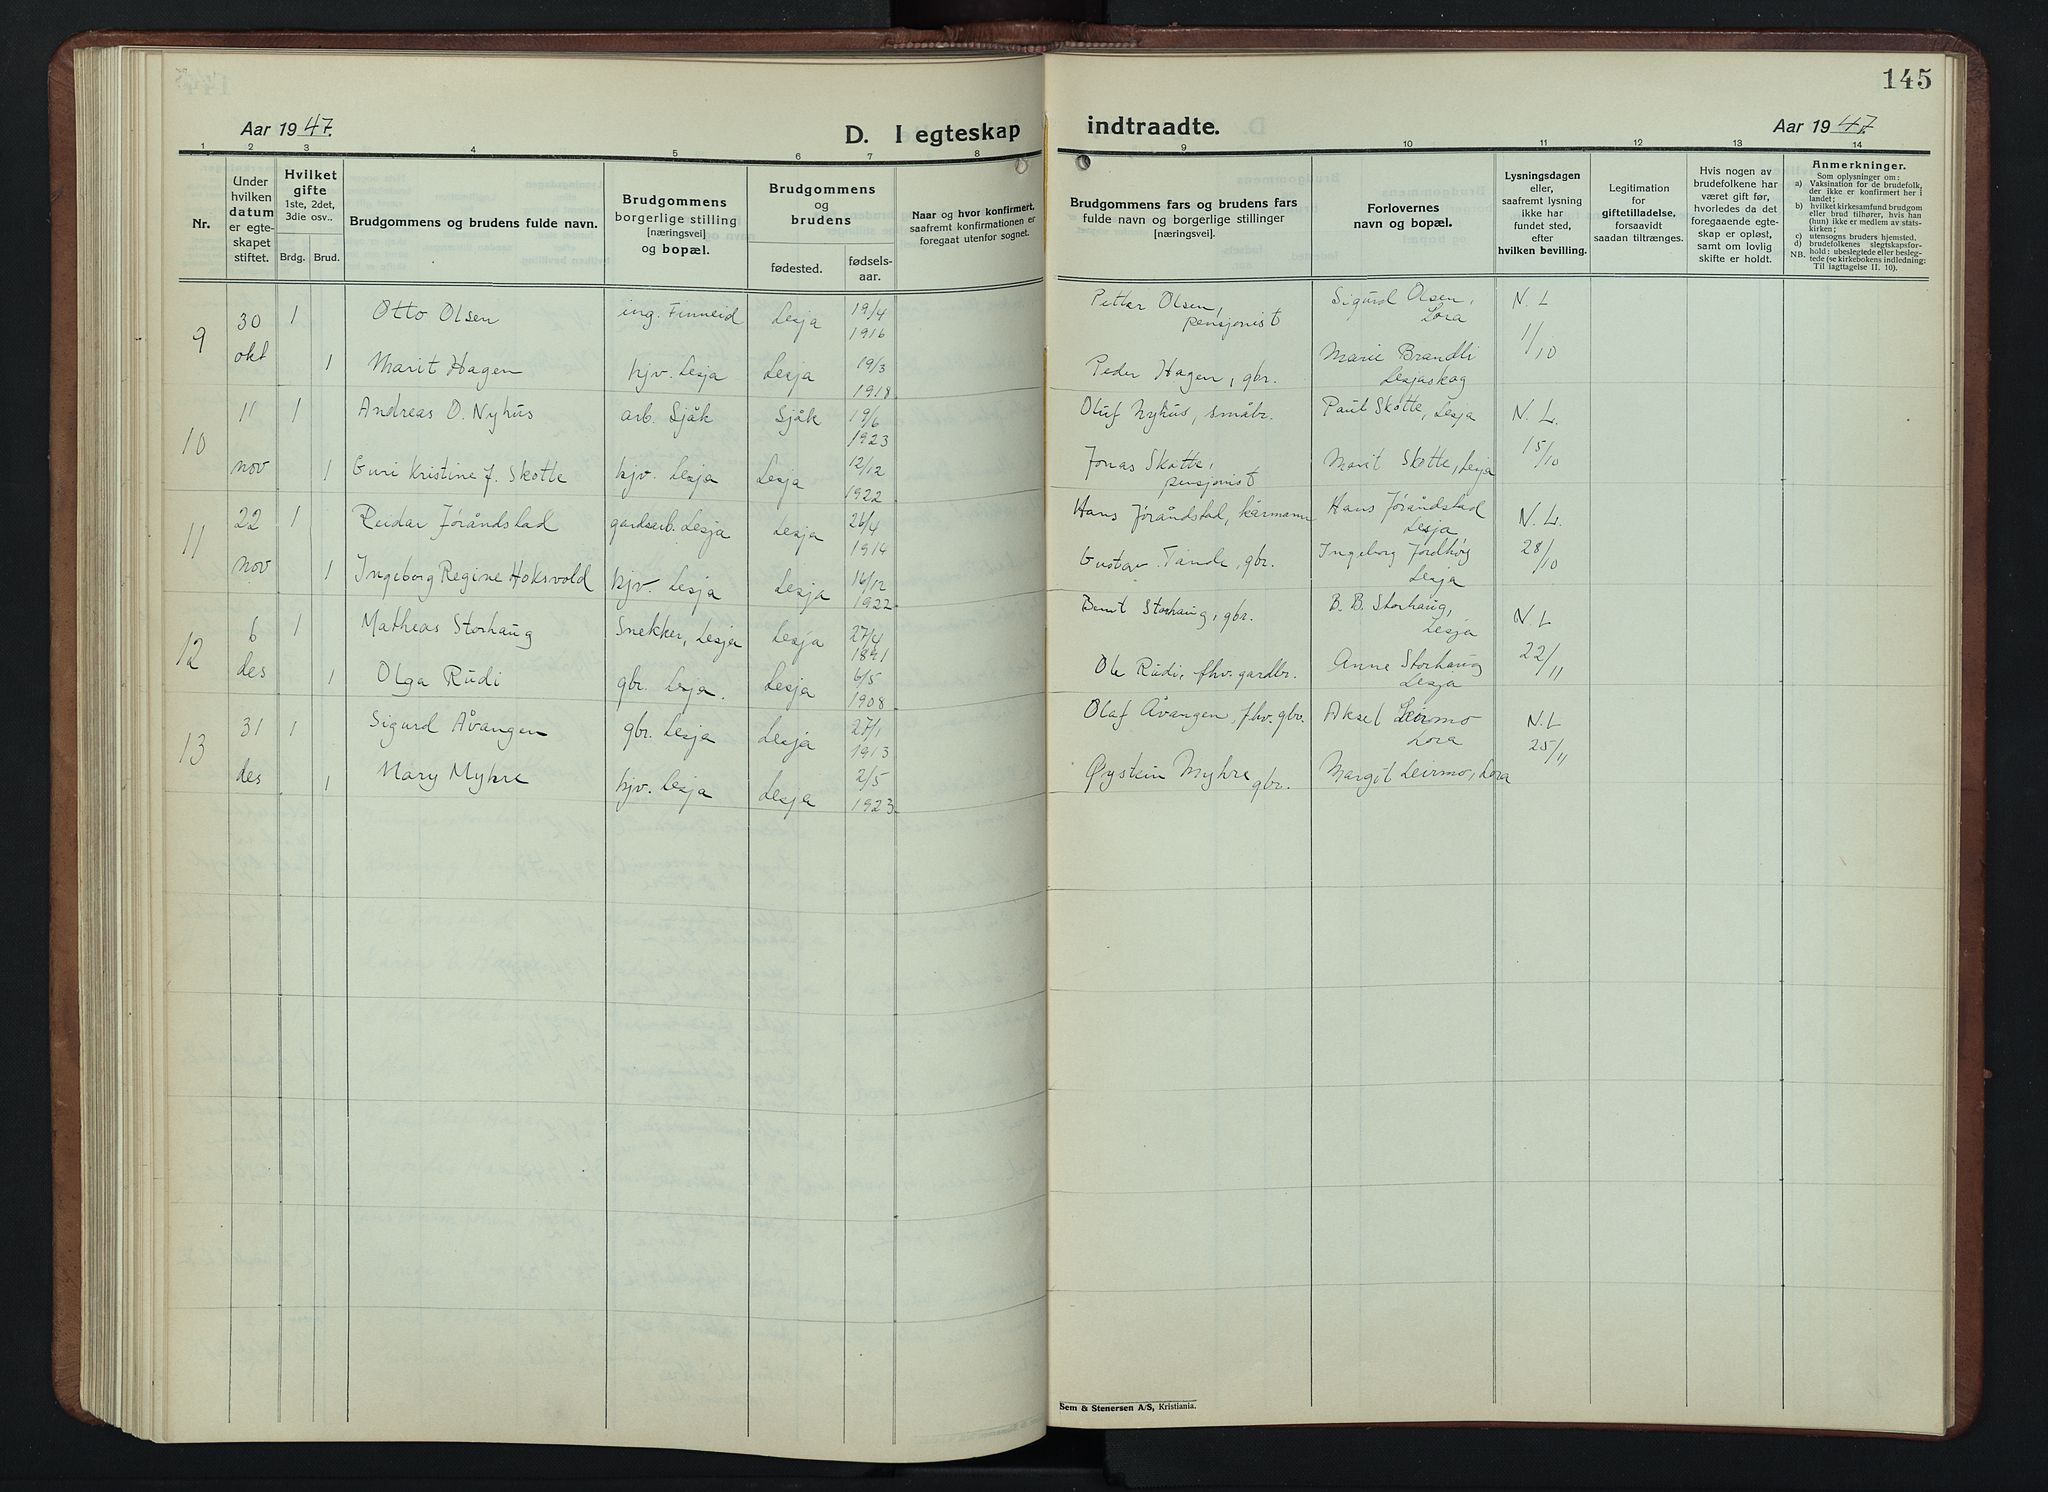 145
Aar 1947.
D. I egteskap indtraadte.
Aar 1947.
1 2 3 4 5 6 7 8 9 10 11 12 13 14
Nr.
Under hvilken datum er egteskapet stiftet.
Hvilket gifte 1ste, 2det, 3die osv..
Brdg. Brud.
Brudgommens og brudens fulde navn.
Brudgommens borgerlige stilling [næringsvei] og bopæl.
Brudgommens og brudens
fødested. fødselsaar.
Naar og hvor konfirmert, saafremt konfirmationen er foregaat utenfor sognet.
Brudgommens fars og brudens fars fulde navn og borgerlige stillinger [næringsvei].
Forlovernes navn og bopæl.
Lysningsdagen eller, saafremt lysning ikke har fundet sted, efter hvilken bevilling.
Legitimation for giftetilladelse, forsaavidt saadan tiltrænges.
Hvis nogen av brudefolkene har været gift før, hvorledes da det foregaaende egteskap er opløst, samt om lovlig skifte er holdt.
Anmerkninger.
Som oplysninger om:
a) Vaksination for de brudefolk, der ikke er konfirmert her i landet;
b) hvilket kirkesamfund brudgom eller brud tilhører, hvis han (hun) ikke er medlem av statskirken;
c) utensogns bruders hjemsted.
d) brudefolkenes slegtskapsforhold: ubeslegtede eller beslegtede (se kirkebokens indledning: Til iagttagelse II, 10).
NB.
9 30 okt 1 Otto Olsen ing. Finneid Lesja 19/4 1916 Petter Olsen, pensjonist Sigurd Olsen, Lora N. L 1/10
1 Marit Hagen hjv. Lesja Lesja 19/3 1918 Peder Hagen, gbr. Marie Brandli Lesjaskog
10 11 nov 1 Andreas O. Nyhus arb. Sjåk Sjåk 19/6 1923 Oluf Nyhus, småbr. Paul Skotte, Lesja N. L. 15/10
1 Guri Kristine J. Skotte hjv. Lesja Lesja 12/12 1922 Jonas Skotte, pensjonist Marit Skotte, Lesja
11 22 nov 1 Reidar Jøråndstad gardsarb. Lesja Lesja 26/4 1914 Hans Jøråndstad, kårmann Hans Jøråndstad Lesja N. L. 28/10
1 Ingeborg Regine Hoksvold hjv. Lesja Lesja 16/12 1922 Gustav Tande, gbr. Ingeborg Jordhøy Lesja
12 6 des 1 Mathias Storhaug Snekker, Lesja Lesja 27/4 1891 Bernt Storhaug, gbr. B. B. Storhaug, Lesja N. L 22/11
1 Olga Rudi gbr. Lesja. Lesja 6/5 1908 Ole Rudi, fhv. gardbr. Anne Storhaug Lesja
13 31 des 1 Sigurd Åvangen gbr. Lesja Lesja 27/1 1913 Olaf Åvangen, fhv. gbr. Aksel Leirmo Lora N. L 25/11
1 Mary Myhre hjv. Lesja Lesja 2/5 1923 Øystein Myhre gbr. Margit Leirmo, Lora
Sem & Stenersen A/S, Kristiania.